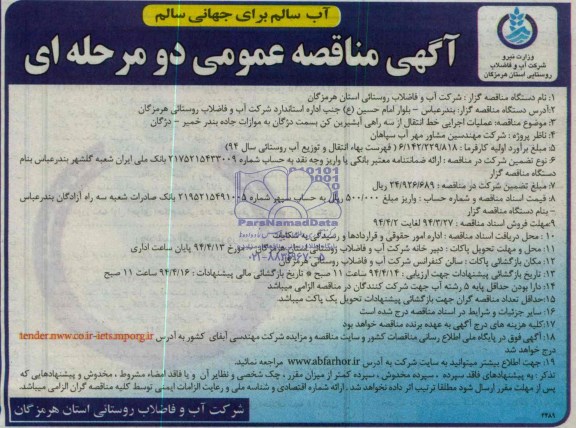 آب سالم برای جهانی سالم
وزارت نیرو
شرکت آب و فاضلاب
روستایی استان هرمزگان
آگهی مناقصه عمومی دو مرحله ای
۱: نام دستگاه مناقصه گزار : شرکت آب و فاضلاب روستائی استان هرمزگان
۲: آدرس دستگاه مناقصه گزار: بندرعباس – بلوار امام حسین (ع) جنب اداره استاندارد شرکت آب و فاضلاب روستائی هرمزگان
۳: موضوع مناقصه: عملیات اجرایی خط انتقال از سه راهی آبشیرین کن بسمت دژگان به موازات جاده بندر خمیر – دژگان
۴: ناظر پروژه : شرکت مهندسین مشاور مهر آب سپاهان
۵: مبلغ برآورد اولیه کارفرما : ۶/۱۴۲/۲۲۹/۸۱۸ ( فهرست بهاء انتقال و توزیع آب روستائی سال ۹۴)
۶: نوع تضمین شرکت در مناقصه : ارائه ضمانتنامه معتبر بانکی یا واریز وجه نقد به حساب شماره ۲۱۷۵۲۱۵۴۳۳۰۰۹ بانک ملی ایران شعبه گلشهر بندرعباس بنام
دستگاه مناقصه گزار
۷: مبلغ تضمین شرکت در مناقصه : ۳۴/۹۲۶/۶۸۹ ریال
۸: قیمت اسناد مناقصه و شماره حساب : واریز مبلغ ۵۰۰/۰۰۰ ریال به حساب سپهر شماره ۲۱۹۵۲۱۵۴۹۱۰۰۵ بانک صادرات شعبه سه راه آزادگان بندرعباس
– بنام دستگاه مناقصه گزار
۹: مهلت فروش اسناد مناقصه : ۹۴/۳/۲۷ لغایت ۹۴/۴/۲
۱۰: محل دریافت اسناد مناقصه : اداره امور حقوقی و قراردادها و رسیدگی به شکایات
۱۱: محل و مهلت تحویل پاکات : دبیر خانه شرکت آب و فاضلاب روستائی استان هرمزگان – مورخ ۹۴/۴/۱۳ پایان ساعت اداری
۱۲: مکان بازگشائی پاکات : سالن کنفرانس شرکت آب و فاضلاب روستائی هرمزگان
۱۳: تاریخ بازگشائی پیشنهادات جهت ارزیابی : ۹۴/۴/۱۴ ساعت ۱۱ صبح * تاریخ بازگشائی مالی پیشنهادات : ۹۴/۴/۱۶ ساعت ۱۱ صبح
۱۴: دارا بودن حداقل پایه ۵ رشته آب جهت شرکت کنندگان در مناقصه الزامی میباشد.
۱۵: حداقل تعداد مناقصه گران جهت بازگشائی پیشنهادات تحویل یک پاکت میباشد.
۱۶: سایر جزئیات و شرایط در اسناد مناقصه درج شده است
۱۷: کلیه هزینه های درج آگهی به عهده برنده مناقصه خواهد بود
۱۸: آگهی فوق در پایگاه ملی اطلاع رسانی مناقصات کشور و سایت مناقصه و مزایده شرکت مهندسی آبفای کشور به آدرس tender.nww.co.ir-iets.mporg.ir
درج خواهد شد
۱۹: جهت اطلاع بیشتر میتوانید به سایت شرکت به آدرس www.abfarhor.ir مراجعه نمائید.
تذکر : به پیشنهادهای فاقد سپرده ، سپرده مخدوش ، سپرده کمتر از میزان مقرر ، چک شخصی و نظایر آن و یا فاقد امضاء مشروط ، مخدوش و پیشنهادهایی که
پس از مهلت مقرر ارسال شود مطلقا ترتیب اثر داده نخواهد شد . ارائه شماره اقتصادی و شناسه ملی و رعایت الزامات ایمنی توسط کلیه مناقصه گران الزامی میباشد.
شرکت آب و فاضلاب روستائی استان هرمزگان
۲۴۸۹
ParsNamadData